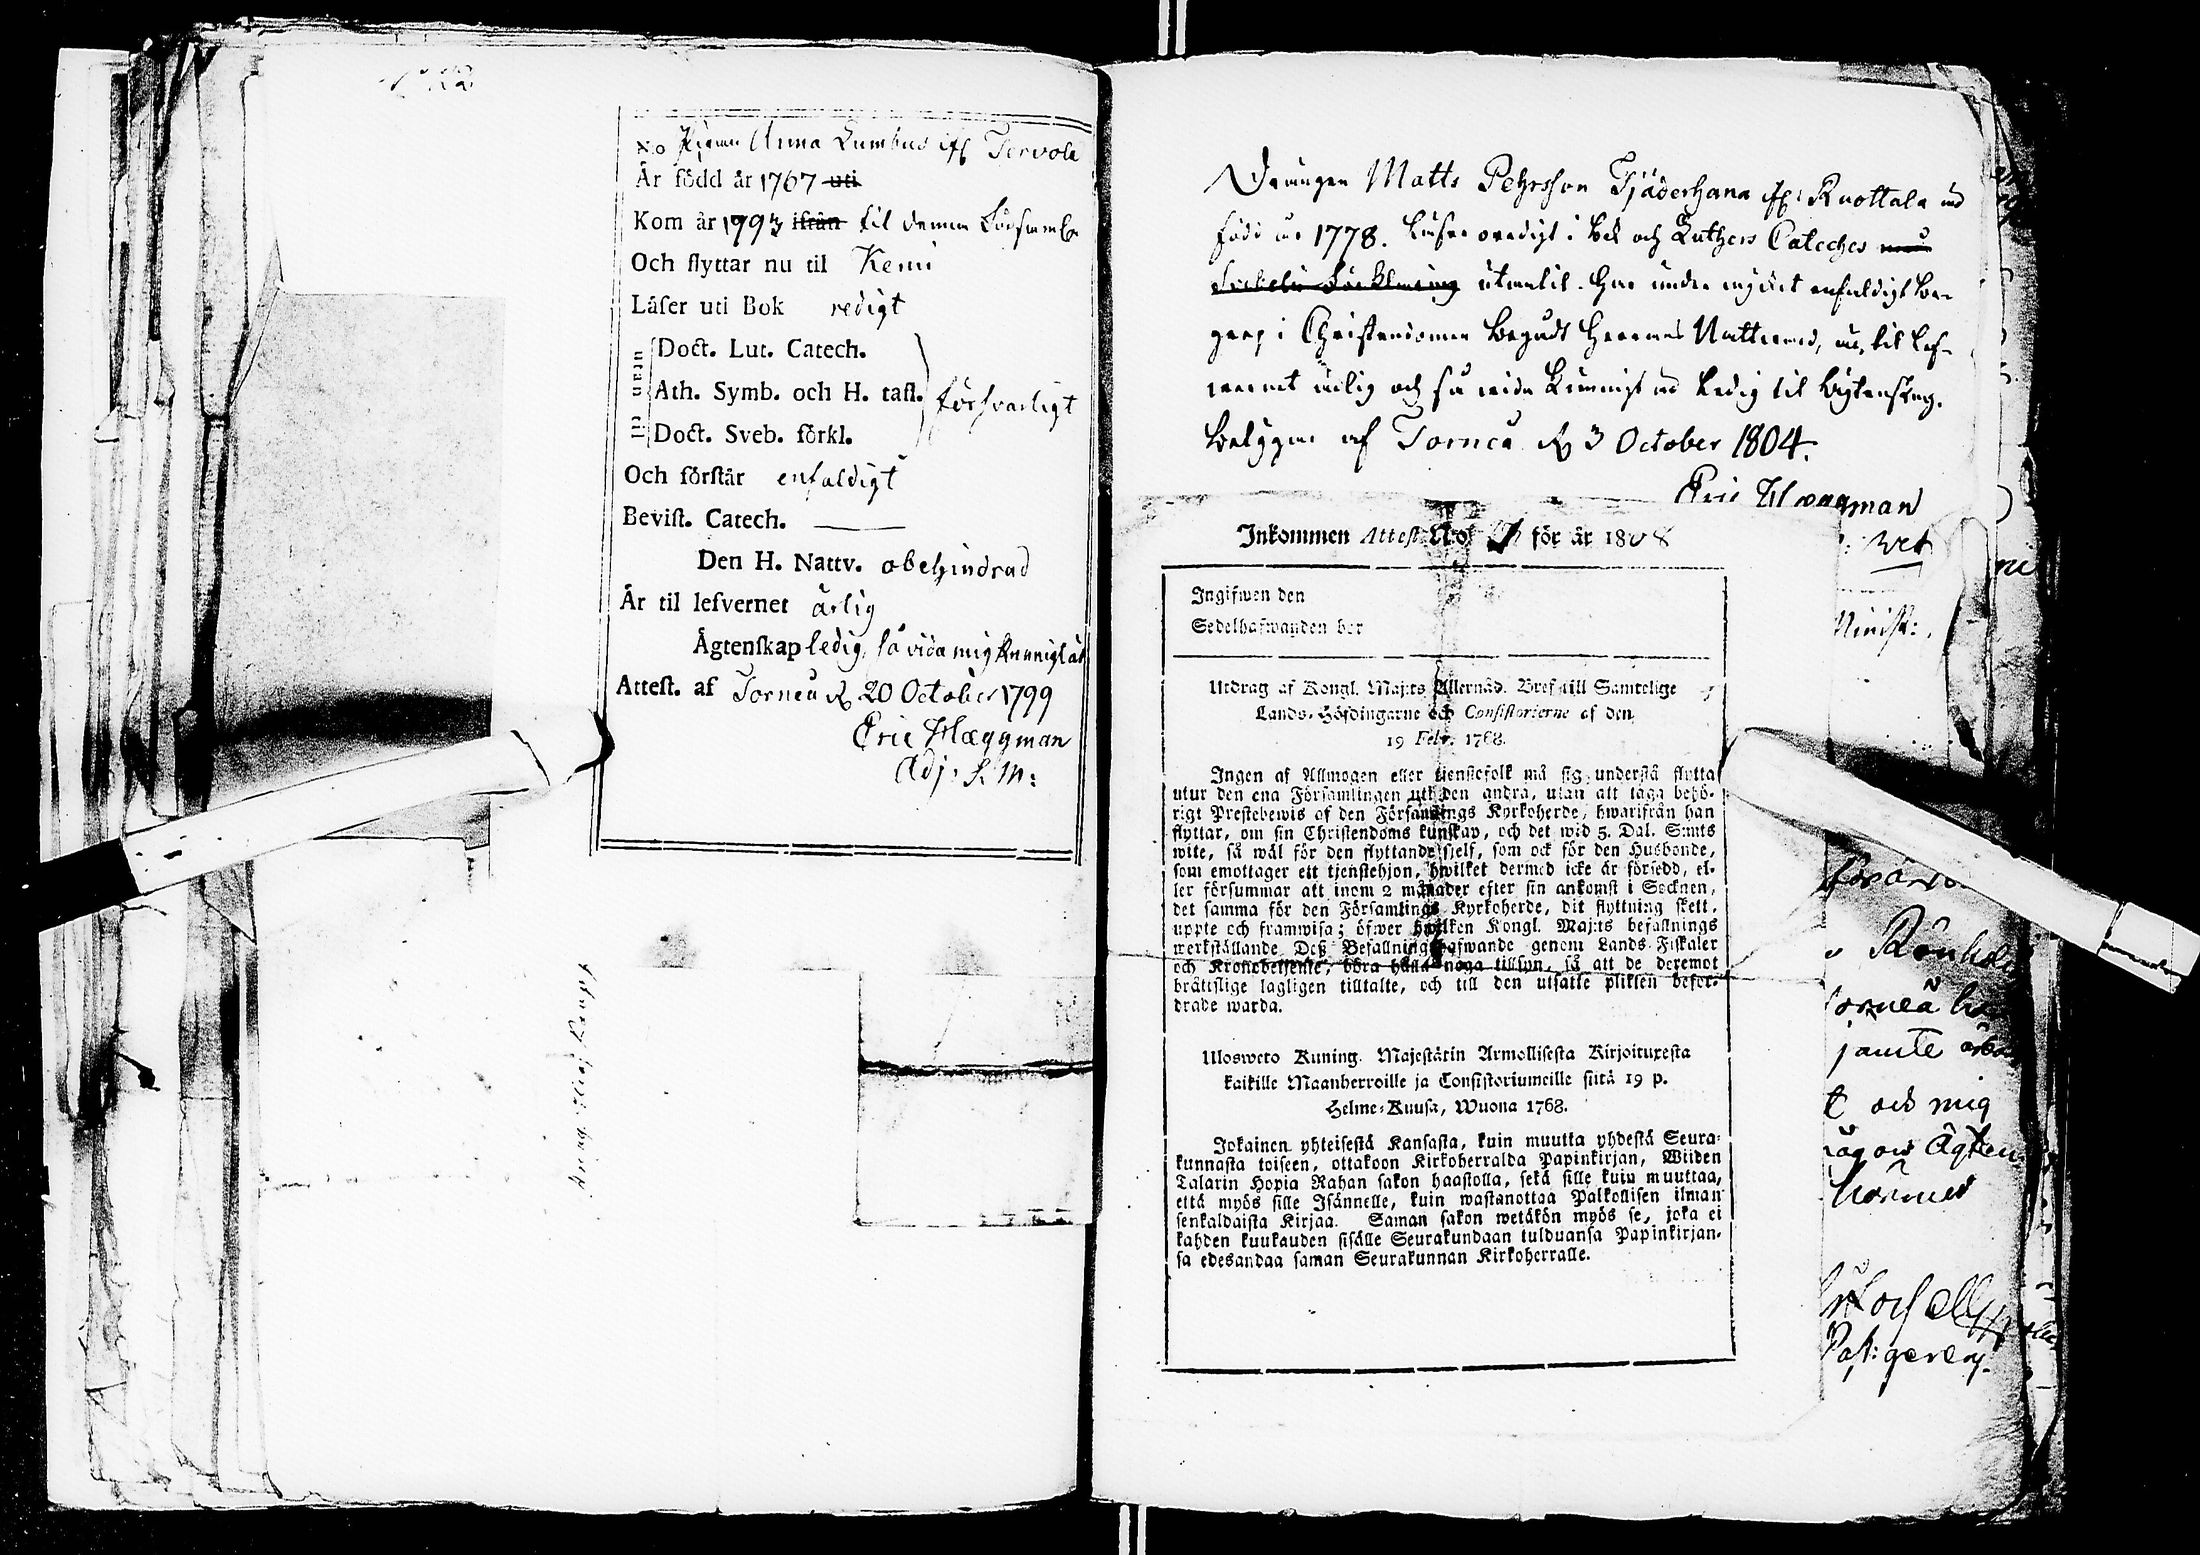 No Pigan Anna Lumbus ifr Tervola
Är född år 1767 uti
Kom år 1793 ifrån til denna Församl.
Och flyttar nu til Kemi
Läſer uti Bok redigt
utan til
Doct. Lut. Catech.
Ath. Symb. och H. tafl.
försvarligt
Doct. Sveb. förkl.
Och förſtår enfaldigt
Beviſt. Catech. ———
Den H. Nattv. obehindrad
Är til lefvernet ärlig
Ägtenſkap ledig, så vida mig kunnigt är
Atteſt. af Torneå d. 20 October 1799
Eric Hæggman
Adj. S. M:
Drängen Matts Pehrsson Tjäderhana ifr: Ruottala är
född år 1778. Läser oredigt i bok och Luthers Cateches med
Svebelii Förklaring utantil. Har under mycket enfaldigt be-
grep i Christendomen begådt Herrans Nattvard, är til lef-
vernet ärlig och så vida kunnigt är ledig til ägtenskap.
Betygar af Torneå d. 3 October 1804.
Eric Hæggman
Inkommen Atteſt No för år 1808
Ingifwen den
Sedelhafwanden bor
Utdrag af Kongl. Maj:ts Allernåd. Bref till Samtelige
Lands-Höfdingarne och Conſiſtorierne af den
19 Febr. 1768.
Ingen af Allmogen eller tjenſtefolk må ſig underſtå flytta
utur den ena Förſamlingen uti den andra, utan att taga behö-
rigt Preſtebewis af den Förſamlings Kyrkoherde, hwarifrån han
flyttar, om ſin Chriſtendoms kunſkap, och det wid 5. Dal. S:mts
wite, ſå wäl för den flyttande ſjelf, ſom ock för den Husbonde,
ſom emottager ett tjenſtehjon, hwilket dermed icke är förſedd, el-
ler förſummar att inom 2 månader efter ſin ankomſt i Socknen,
det ſamma för den Förſamlings Kyrkoherde, dit flyttning ſkett,
uppte och framwiſa; öfwer hwilken Kongl. Maj:ts befallnings
werkſtällande Deß Befallningshafwande genom Lands Fiſkaler
och Kronobetjente, böra hålla noga tillſyn, ſå att de deremot
brätiſlige lagligen tilltalte, och till den utſatte plikten befor-
drade warda.
Ulosweto Kuning. Majeſtätin Armolliſeſta Kirjoituxeſta
kaikille Maanherroille ja Conſiſtoriumeille ſiitä 19 p.
Helme-Kuuſa, Wuona 1768.
Jokainen yhteiſeſtä Kanſaſta, kuin muutta yhdeſtä Seura-
kunnaſta toiſeen, ottakoon Kirkoherralda Papinkirjan, Wiiden
Talarin Hopia Rahan ſakon haaſtolla, ſekä ſille kuin muuttaa,
että myös ſille Iſännelle, kuin waſtanottaa Palkolliſen ilman
ſenkaldaiſta Kirjaa. Saman ſakon wetäkön myös ſe, joka ei
kahden kuukauden ſiſälle Seurakundaan tulduanſa Papinkirjan-
ſa edesandaa ſaman Seurakunnan Kirkoherralle.
Miniſt:
orneå
jämte
t och mig
ågon Ägten
Paſt: gereny.